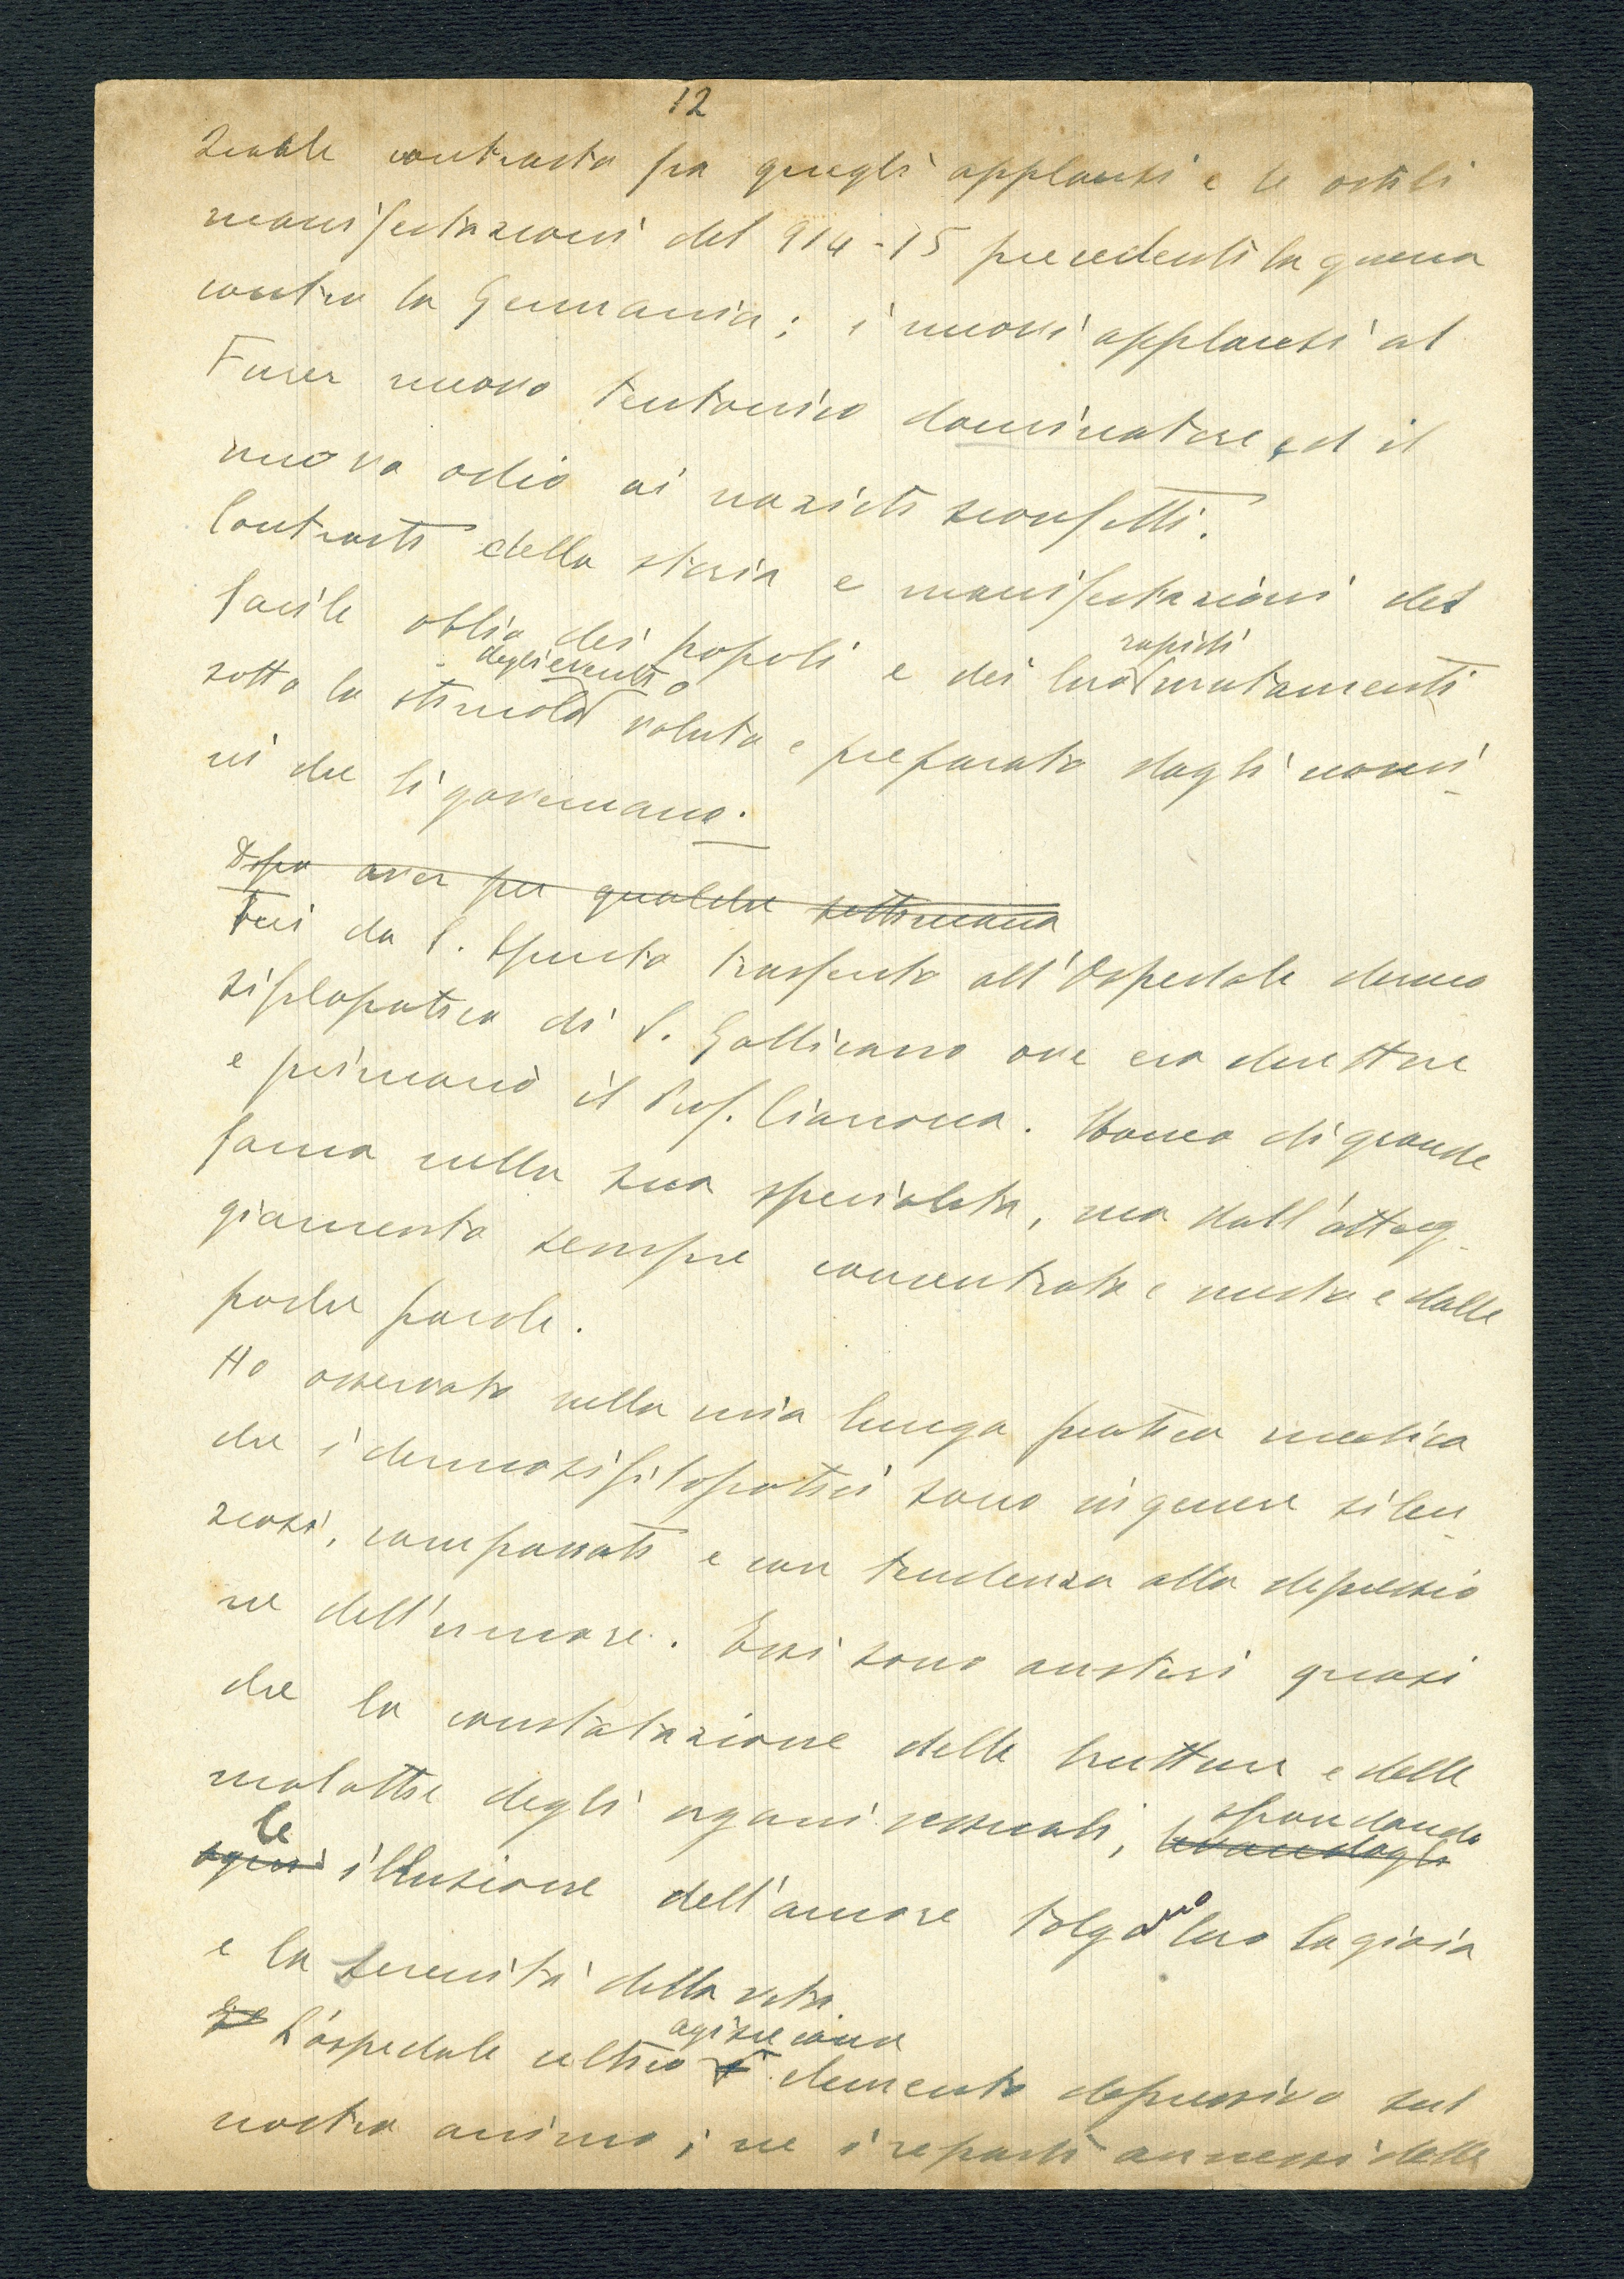 12
zevole contrasto fra quegli applausi e le ostili
manifestazioni del 914-15 precedenti la guerra
contro la Germania; i nuovi applausi al
Furer nuovo teutonico dominatore, ed il
nuovo odio ai nazisti sconfitti.
Contrasti della storia e manifestazioni del
facile oblio dei popoli e dei loro rapidi mutamenti
sotto lo stimolo degli eventi o voluto e preparato dagli uomi-
ni che li governano.
Dopo aver per qualche settimana
Fui da S. Spirito trasferito all'Ospedale dermo
sifilopatico di S. Gallicano ove era direttore
e primario il Prof. Ciarrocca. Uomo di grande
fama nella sua specialità, ma dall'atteg-
giamento sempre concentrato e mesto e dalle
poche parole.
Ho osservato nella mia lunga pratica medica
che i dermosifilopatici sono in genere silen-
ziosi, compassati e con tendenza alla depressio
ne dell'umore. Essi sono austeri quasi
che la constatazione delle brutture e delle
malattie degli organi sessuali, sfrondando
le illusione dell'amore tolgano loro la gioia
e la serenità della vita.
L'ospedale celtico agisce come elemento depressivo sul
nostro animo; ne i reparti annessi delle